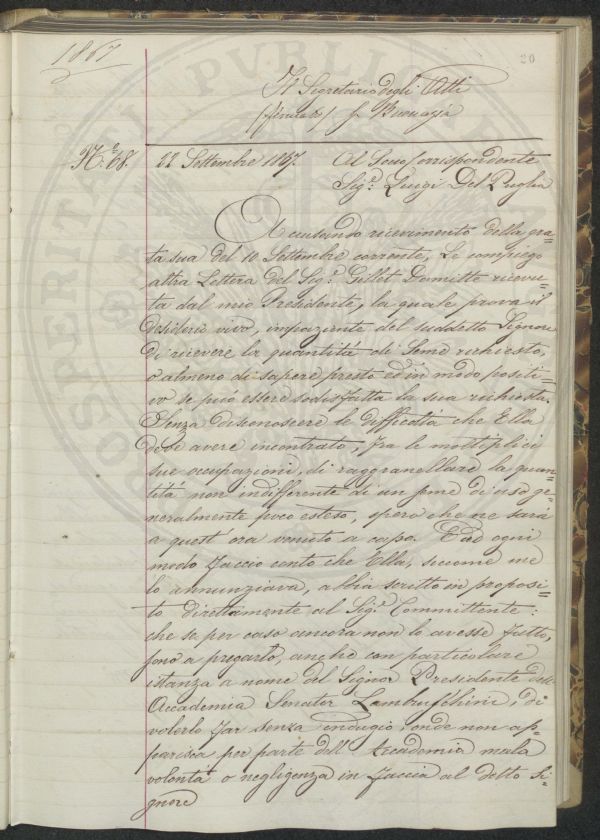 1867
20
Il Segretario degli Atti
(firmato) f. Buonazia
N.º 68. 22 Settembre 1867. Al Socio corrispondente
Sig.r Luigi Del Puglia
Accusando ricevimento della gra=
ta sua del 10 Settembre corrente, Le compiego
altra Lettera del Sig.r Gillet Damitte ricevu=
ta dal mio Presidente, la quale prova il
desiderio vivo, impaziente del suddetto Signore
di ricevere la quantità di Seme richiesto,
o almeno di sapere presto ed in modo positi=
vo se può essere sodisfatta la sua richiesta.
Senza disconoscere le difficoltà che Ella
deve avere incontrato, fra le moltiplici
sue occupazioni, di raggranellare la quan=
tità non indifferente di un seme di uso ge=
neralmente poco esteso, spero che ne sarà
a quest'ora venuto a capo. Ed ogni
modo faccio conto che Ella, siccome me
lo annunziava, abbia scritto in proposi=
to direttamente al Sig.r Committente:
che se per caso ancora non lo avesse fatto,
sono a pregarlo, anche con particolare
istanza a nome del Signor Presidente dell'
Accademia Senator Lambruschini, di
volerlo far senza indugio, onde non ap=
parisca per parte dell'Accademia mala
volontà o negligenza in faccia al detto Si=
gnore